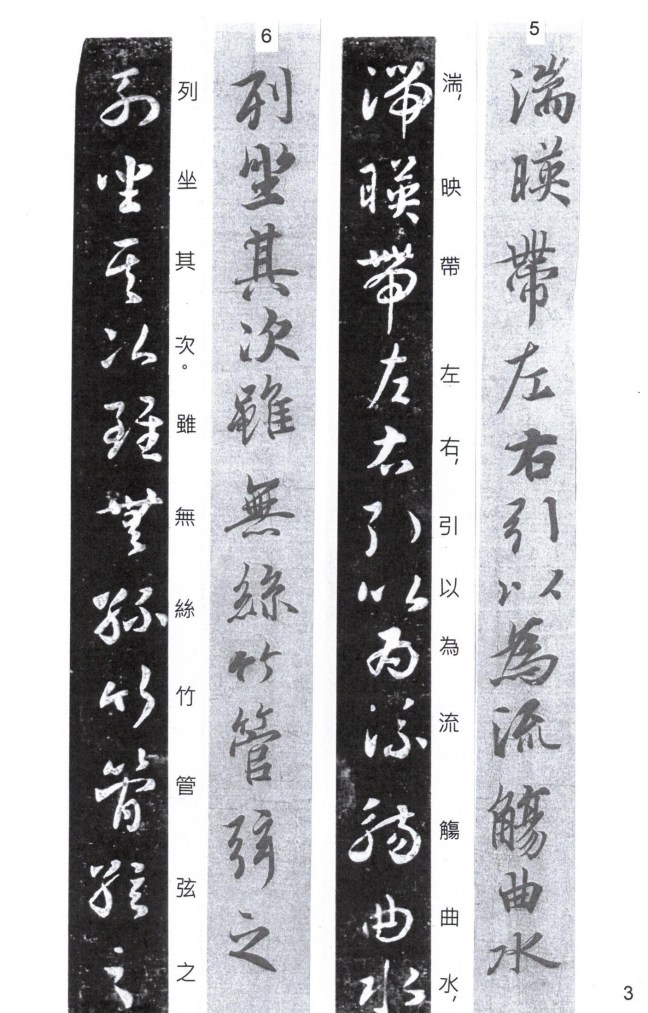 5
湍暎帶左右引以為流觴曲水
湍,映帶左右,引以為流觴曲水,
湍暎帶左右引以為流觴曲水
6
列坐其次雖無絲竹管弦之
列坐其次。雖無絲竹管弦之
列坐其次雖無絲竹管弦之
3